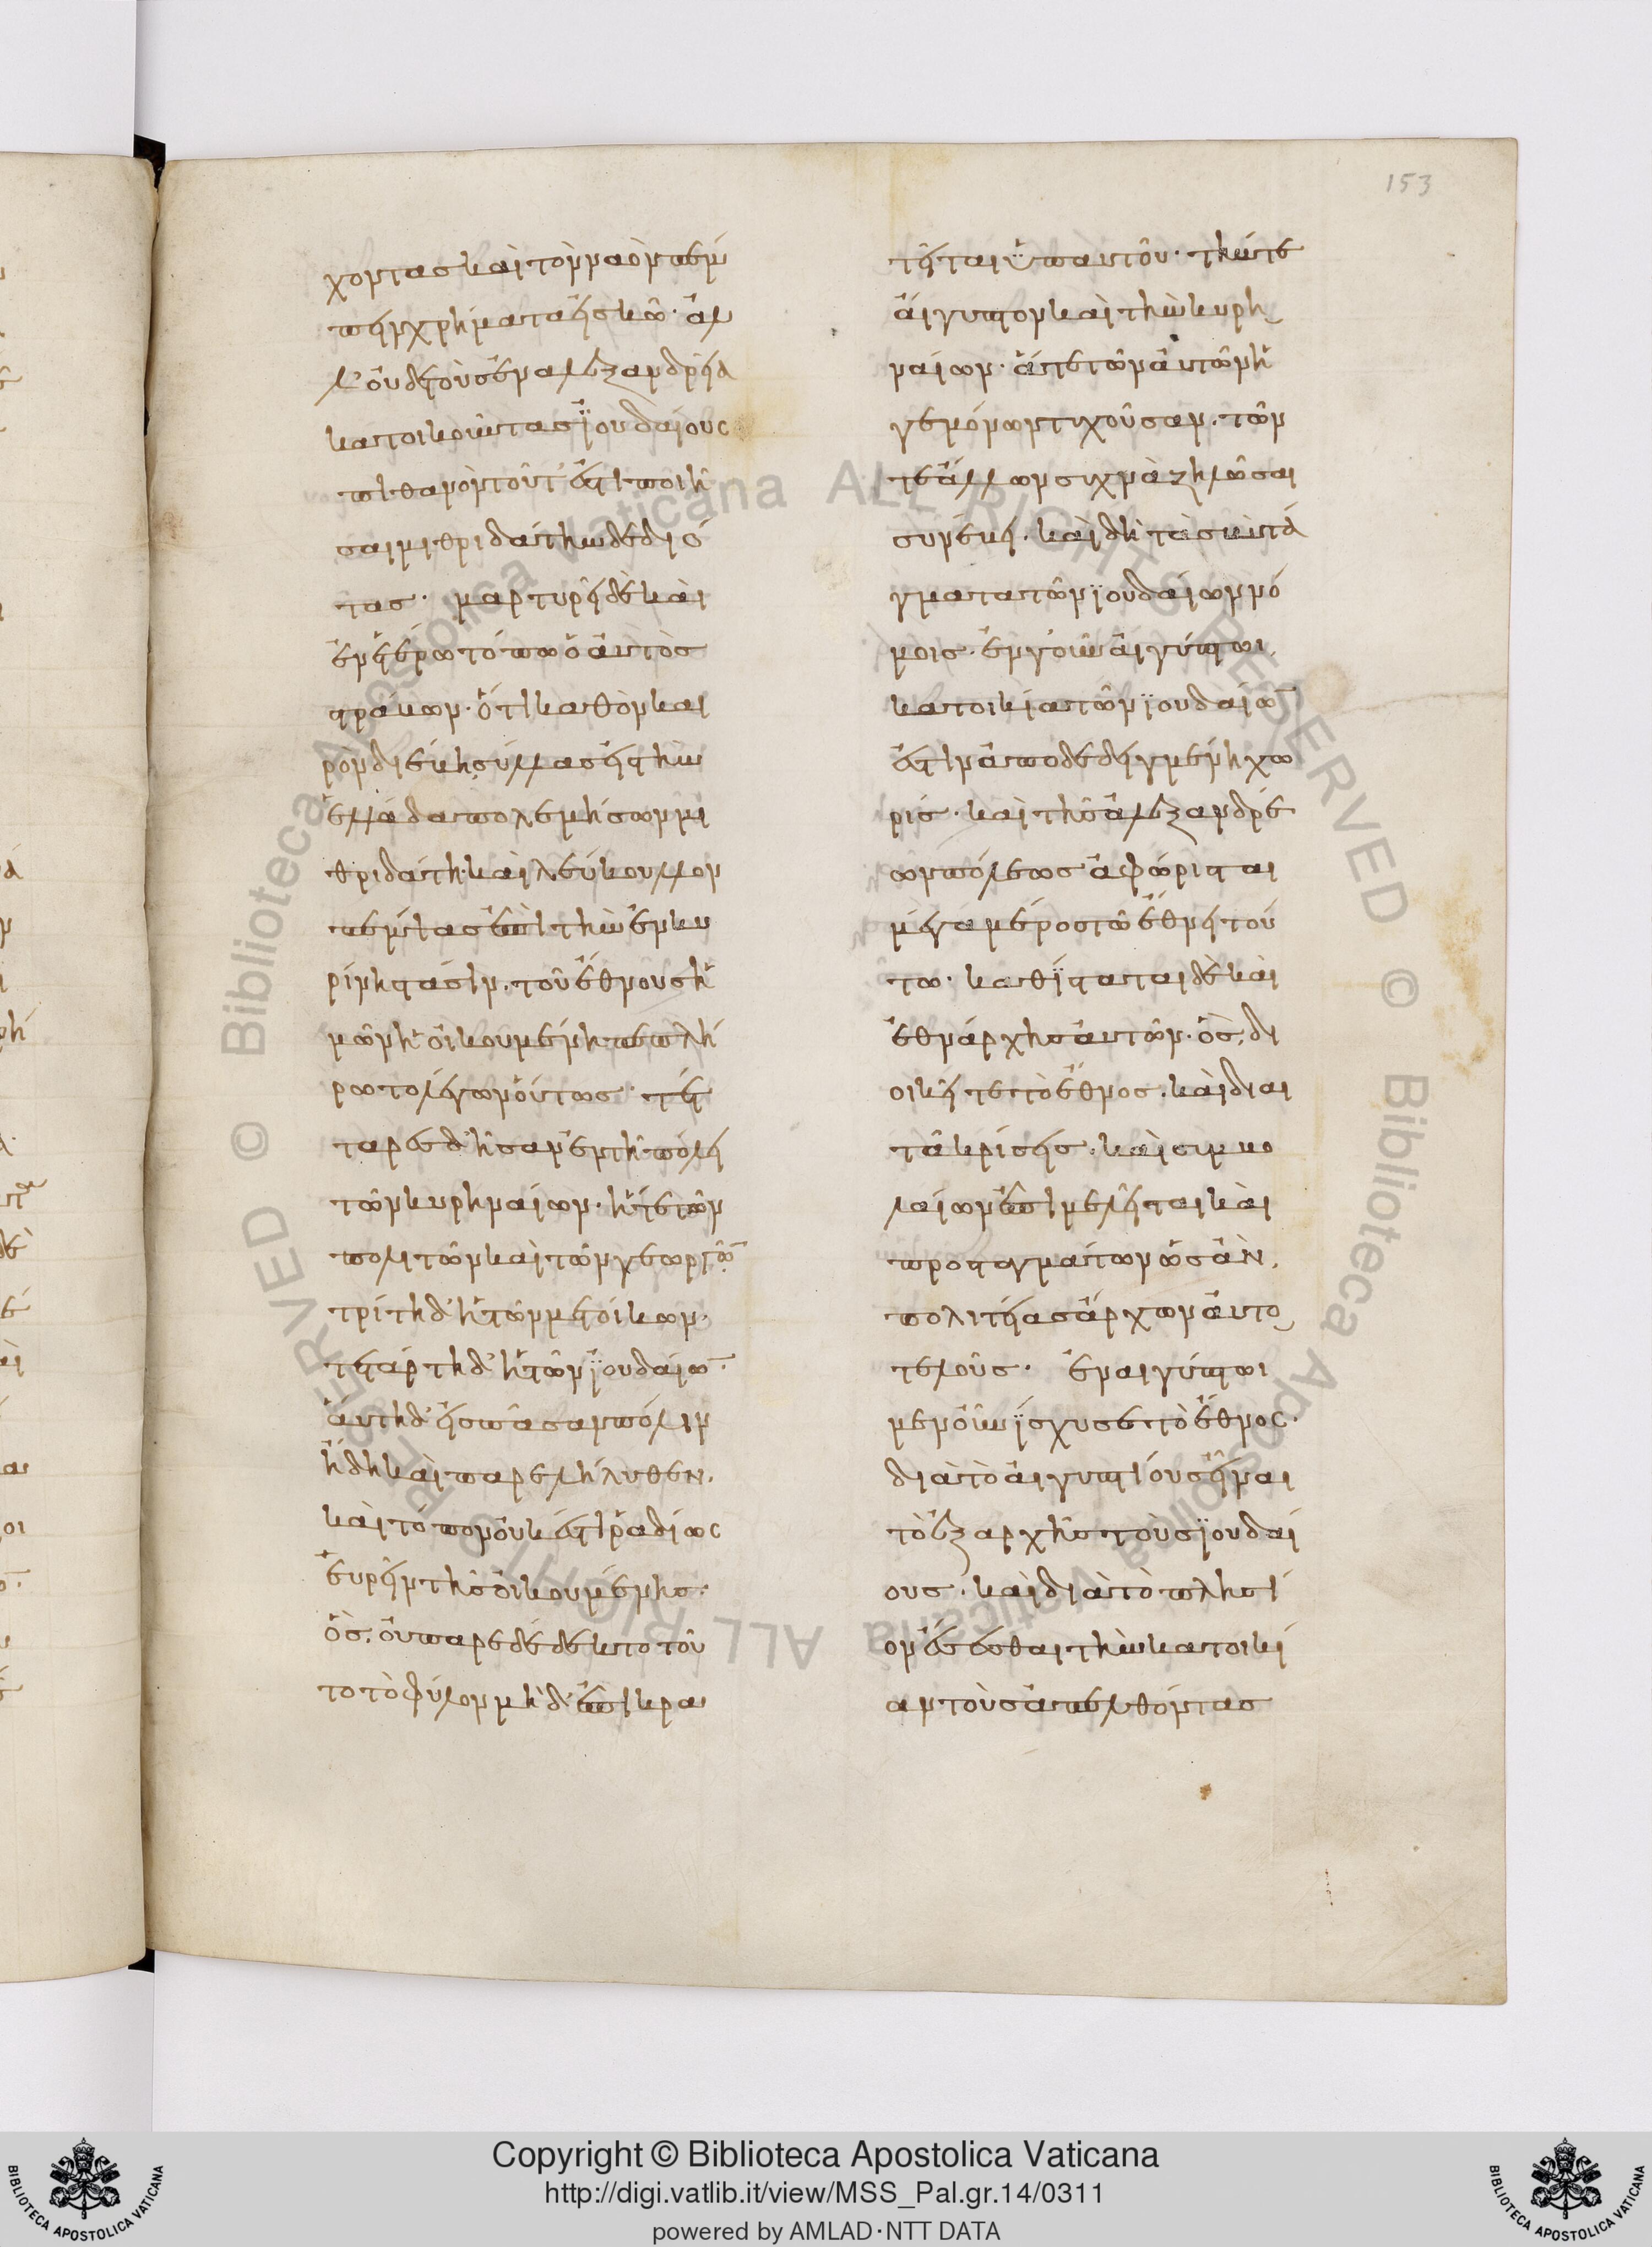 153
χοντασ καὶ τὸν ναὸν πέμ
πειν χρήματα εἰσ κῶ· ἀλ
λ' οὐδὲ τοὺσ ἐν ἀλεξανδρείᾳ
κατοικοῦντασ ϊουδαίουσ
πιθανὸν τοῦτ' ἐστὶ ποιῆ
σαι μιθριδάτην δεδιό
τασ· μαρτυρεῖ δὲ καὶ
ἐν ἑτέρω τόπω ὁ αὐτὸσ
στράβων· ὅτι καθ' ὃν και
ρὸν διέβη σύλλασ εἰσ τὴν
ἑλλάδα πολεμήσων μι
θριδάτη· καὶ λεύκουλλον
πέμψασ ἐπὶ τὴν ἐν κυ
ρήνη στάσιν. τοῦ ἔθνουσ ἡ
μῶν ἡ οἰκουμένη πεπλή
ρωτο λέγων οὕτωσ· τέτ
ταρεσ δ' ἦσαν ἐν τῆ πόλει
τῶν κυρηναίων· ἥ τε τῶν
πολιτῶν καὶ τῶν γεωργῶν
τρίτη δ' ἡ τῶν μετοίκων·
τετάρτη δ' ἡ τῶν ϊουδαίων·
αὕτη δ' εἰσ πᾶσαν πόλιν
ἤδη καὶ παρελήλυθεν.
καὶ τόπον οὐκ ἔστι ῥαδίωσ
εὑρεῖν τῆσ οἰκουμένησ·
ὃσ, οὐ παρεδέδεκτο τοῦ
το τὸ φύλον μὴ δ' ἐπικρα
τεῖται ϋπ' αὐτοῦ· τήν τε
αἴγυπτον καὶ τὴν κυρη
ναίων· ἅτε τῶν αὐτῶν ἡ
γεμόνων τυχοῦσαν. τῶν
τε ἄλλων συχνὰ ζηλῶσαι
συνέβη. καὶ δὴ τὰ συντά
γματα τῶν ϊουδαίων νό
μοισ· ἐν γοῦν αἰγύπτωι
κατοικία τῶν ϊουδαίων
ἐστὶν ἀποδεδειγμένη χω
ρίσ· καὶ τῆσ ἀλεξανδρέ
ων πόλεωσ ἀφώρισται
μέγα μέροσ τῶ ἔθνει τού
τω· καθϊσταται δὲ καὶ
ἐθνάρχησ αὐτῶν· ὃσ, δι
οικεῖ τε τὸ ἔθνοσ. καὶ διαι
τᾶ κρίσεισ. καὶ συμβο
λαίων ἐπιμελεῖται καὶ
προσταγμάτων ὡσ ἂν,
πολιτείασ ἄρχων αὐτο
τελοῦσ· ἐν αἰγύπτωι
μὲν οὖν ϊσχυσε τὸ ἔθνοσ·
διὰ τὸ αἰγυπτίουσ εἶναι
τὸ ἐξ ἀρχῆσ τοὺσ ϊουδαί
ουσ· καὶ διὰ τὸ πλησί
ον ἔσεσθαι τὴν κατοικί
αν τοὺσ ἀπελθόντασ
Copyright © Biblioteca Apostolica Vaticana
http://digi.vatlib.it/view/MSS_Pal.gr.14/0311
powered by AMLAD·NTT DATA